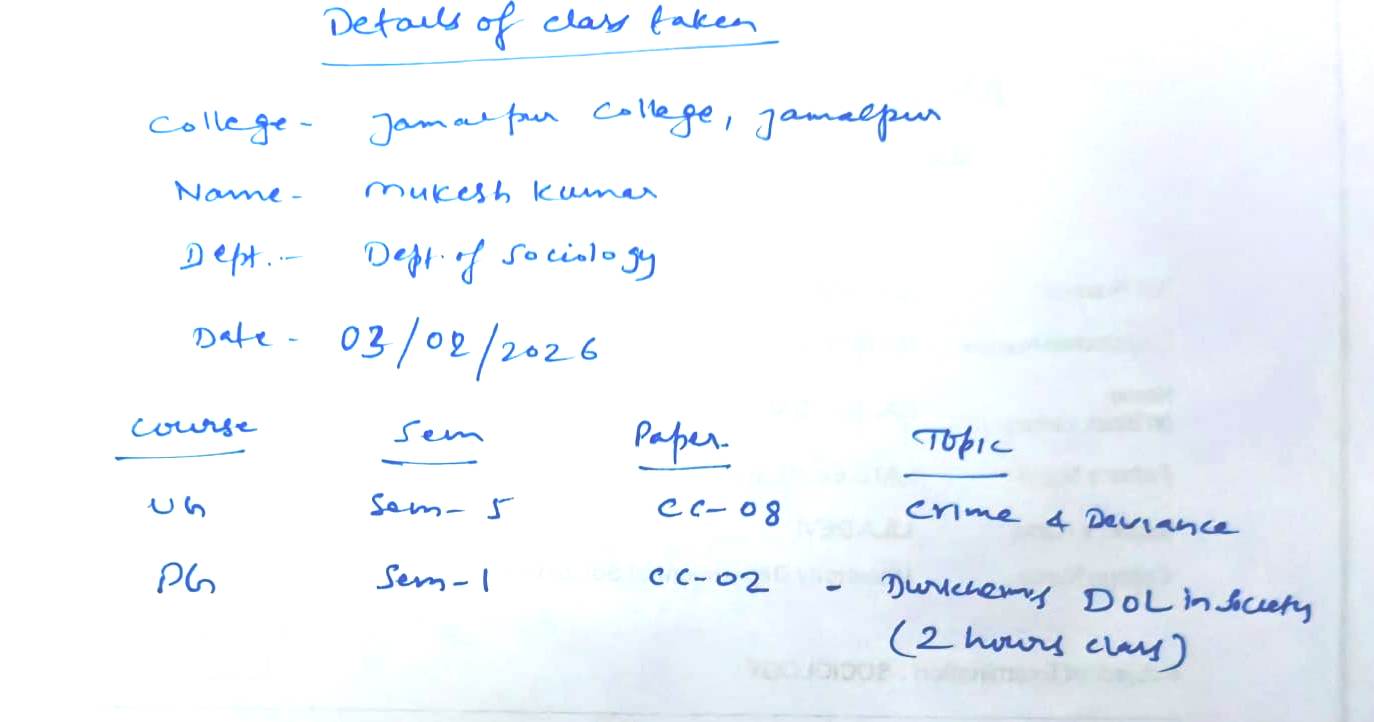 Details of class taken
College - Jamalpur College, Jamalpur
Name - Mukesh Kumar
Dept. - Dept. of Sociology
Date - 03/02/2026
Course Sem Paper. Topic
UG Sem - 5 CC - 08 Crime & Deviance
PG Sem - 1 CC - 02 - Durkheim's DOL in Society
(2 hours class)